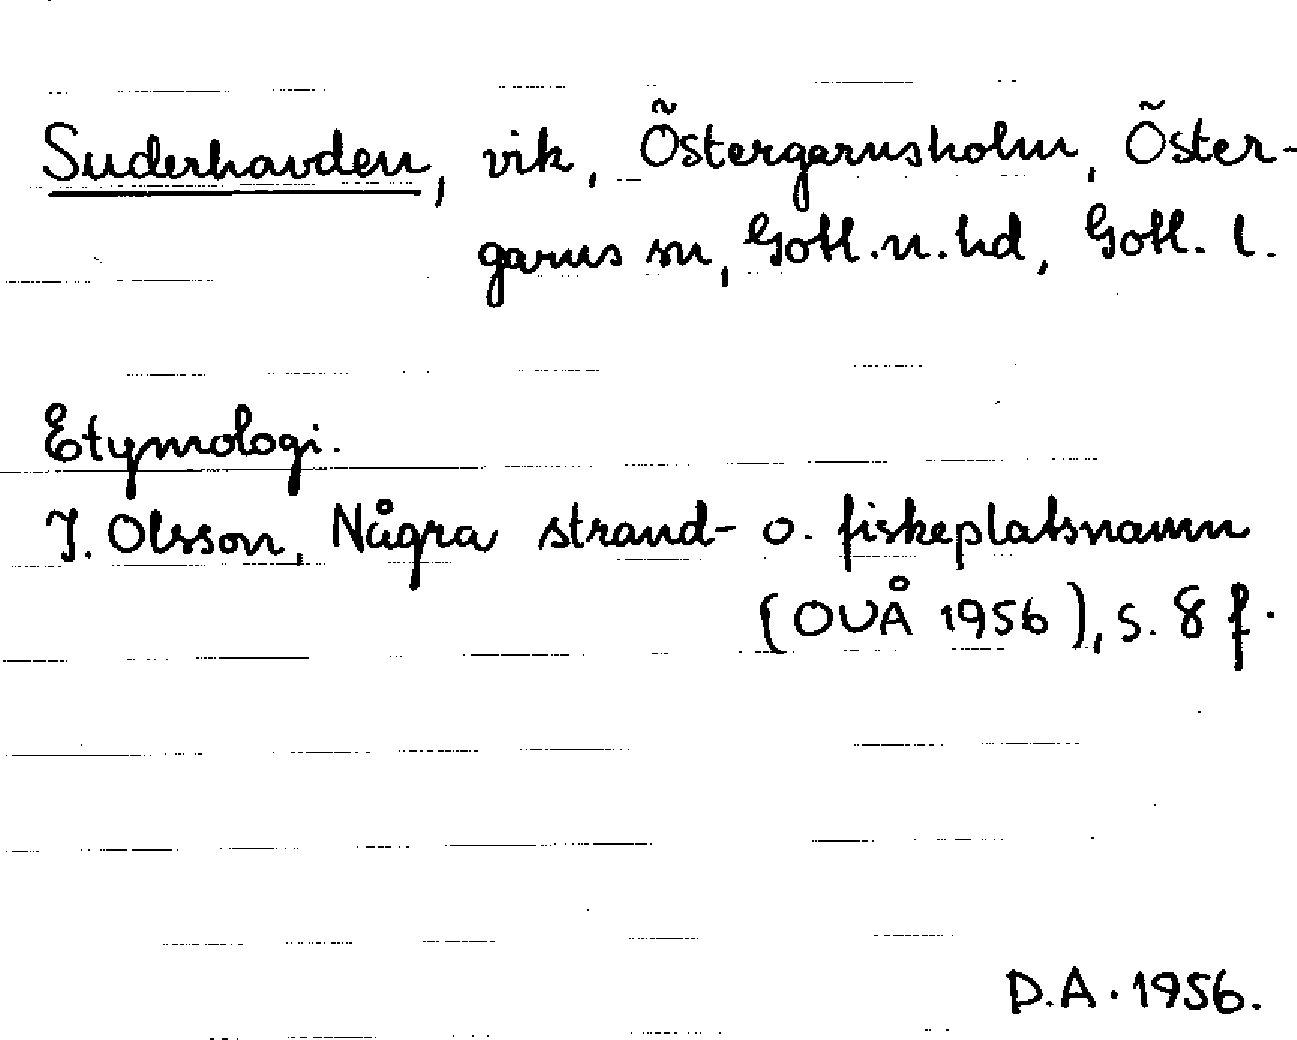 Suderhavden, vik, Östergarnsholm, Öster-
garns sn, Gotl. n. hd, Gotl. l.
Etymologi.
I. Olsson, Några strand- o. fiskeplatsnamn
(OUÅ 1956), s. 8 f.
D.A. 1956.